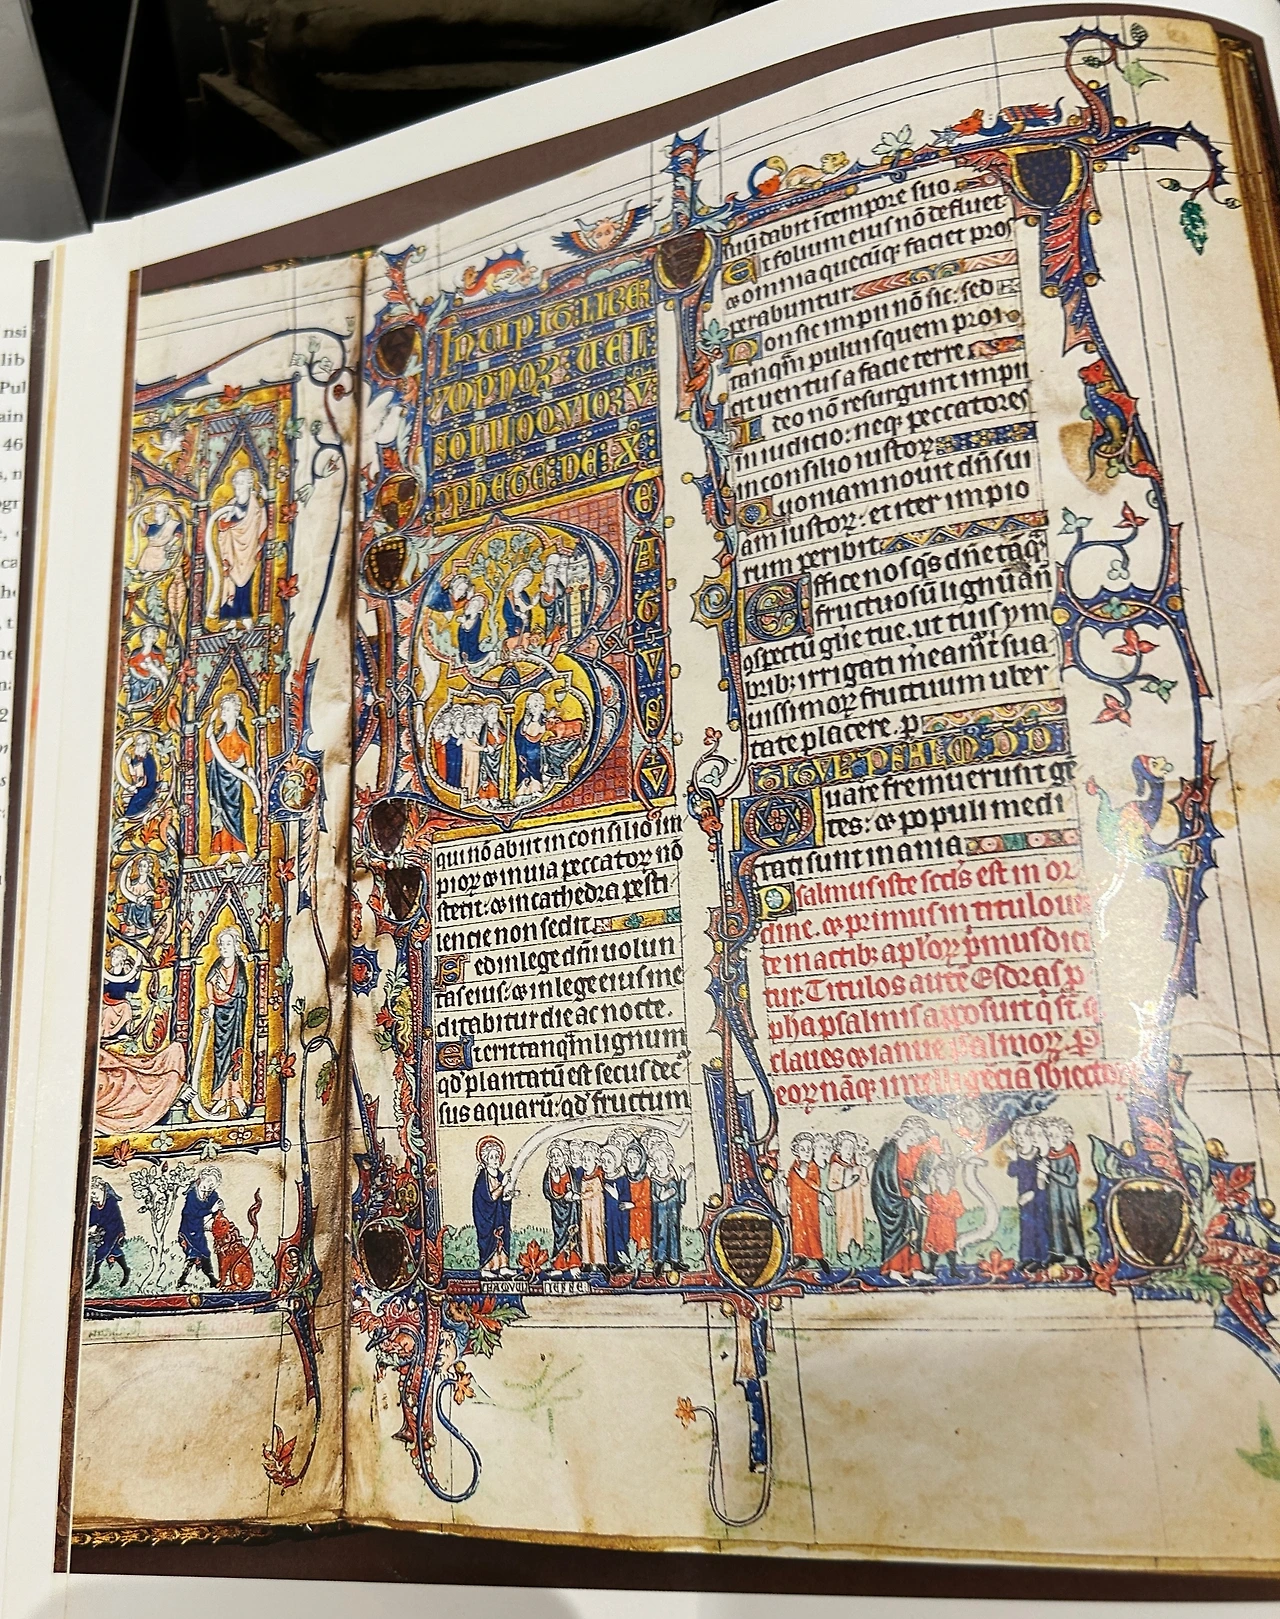 nsi
lib
Pul
ain
46
s, n
ogr
ca
he
INCIPIT: LIBER
YMPNOꝜ: UEL:
SOLILOQVIOꝜ: V:
PPHETE: DE: X̄:
BEATVS: V
qui nō abiit in consilio im
pioꝝ ⁊ in uia peccatoꝝ nō
stetit: ⁊ in cathedra pesti
lencie non sedit.
Sed in lege dn̄i uolun
tas eius: ⁊ in lege eius me
ditabitur die ac nocte.
Et erit tanqͫ lignum
qd̓ plantatū est secus dec̓
sus aquarū: qd̓ fructum
suū dabit ī tempore suo.
Et folium eius nō defluet:
⁊ omnia quecūqꝫ faciet pros
perabuntur.
Non sic impii nō sic: sed
tanqͫ puluis quem proi
cit uentus a facie terre.
Ideo nō resurgunt impii
in iudicio: neqꝫ peccatores
in consilio iustoꝝ.
Quoniam nouit dn̄s ui
am iustoꝝ: et iter impio
rum peribit.
Effice nos qs̄ dn̄e tāqͫ
fructuosū lignū añ
ꝯspectū gr̄e tue. ut tuis ym
brib; irrigati
uissimoꝝ fructuum uber
tate placere. p̱
Quare fremuerunt gē
tes: ⁊ populi medi
tati sunt inania.
Psalmus iste scd̓s est in or
dine. ⁊ primus in titulo
in actib; apl̓oꝝ p̓mus dici
tur. Titulos aut̄ē Esdras p̱
pha psalmis apposuit q̄ st̄.
claues ⁊ ianue psalmoꝝ. P̱
eoꝝ nāqꝫ intelligēciā